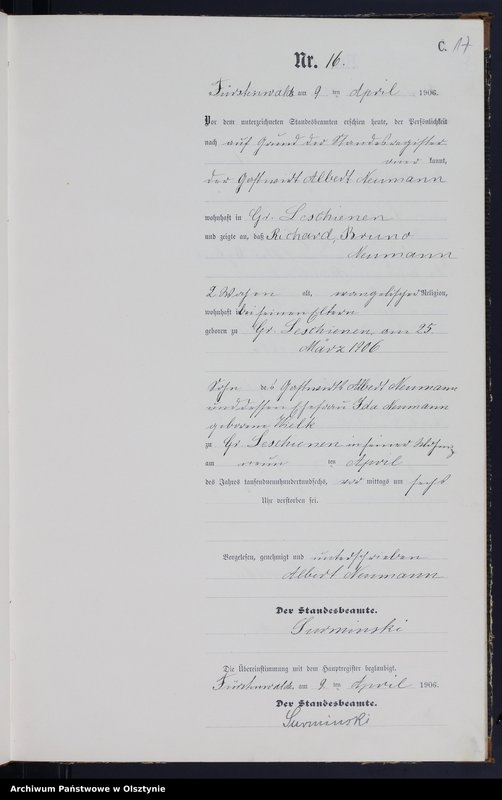 C. 17
Nr. 16.
Fürstenwalde am 9 ten April 1906.
Vor dem unterzeichneten Standesbeamten erschien heute, der Persönlichkeit
nach auf Grund der Standesregister
kannt,
der Gastwirt Albert Neumann
wohnhaft in Gr. Leschienen
und zeigte an, daß Richard, Bruno
Neumann
2 Wochen alt, evangelischer Religion,
wohnhaft bei seinen Eltern
geboren zu Gr. Leschienen, am 25.
März 1906
Sohn des Gastwirth Albert Neumann
und dessen Ehefrau Ida Neumann
geborene
zu Gr. Leschienen in seiner Wohnung
am neun ten April
des Jahres tausendneunhundertundsechs, vor mittags um sechs
Uhr verstorben sei.
Vorgelesen, genehmigt und unterschrieben
Albert Neumann
Der Standesbeamte.
Surminski
Die Übereinstimmung mit dem Hauptregister beglaubigt.
Fürstenwalde, am 9. ten April 1906.
Der Standesbeamte.
Surminski
Archiwum Państwowe w Olsztynie